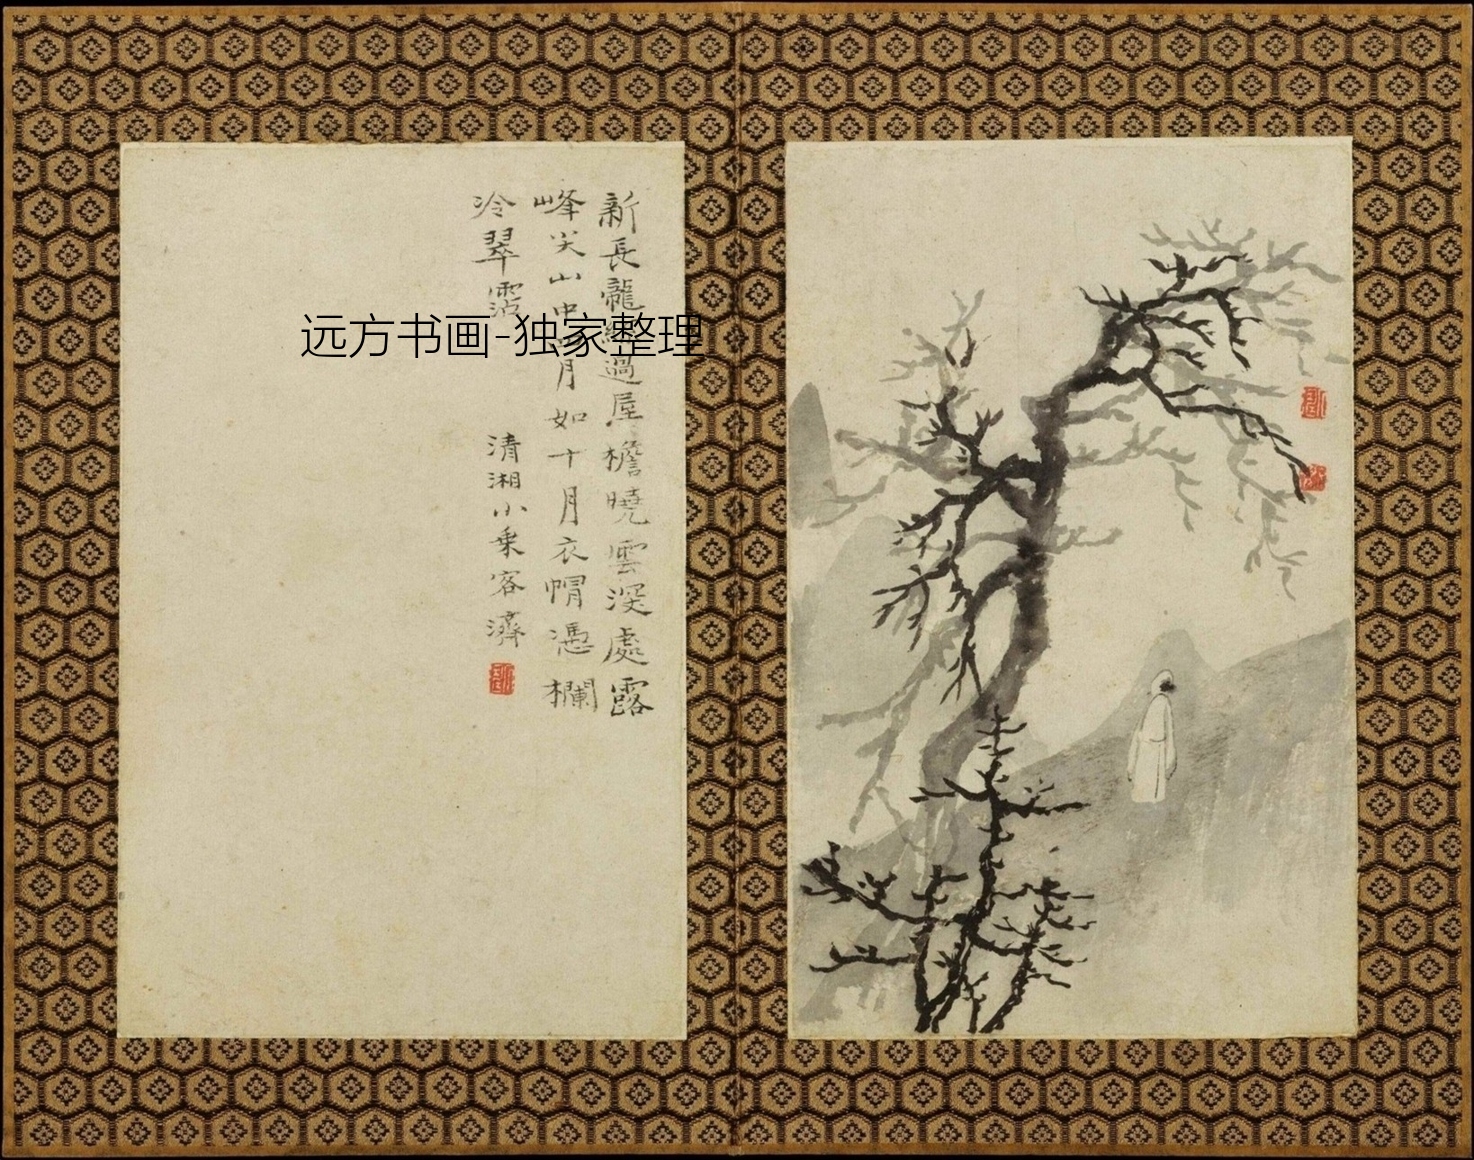 新長龍孫過屋檐曉雲深處露
峰尖山中四月如十月衣帽憑欄
冷翠霑
清湘小乘客濟
远方书画-独家整理